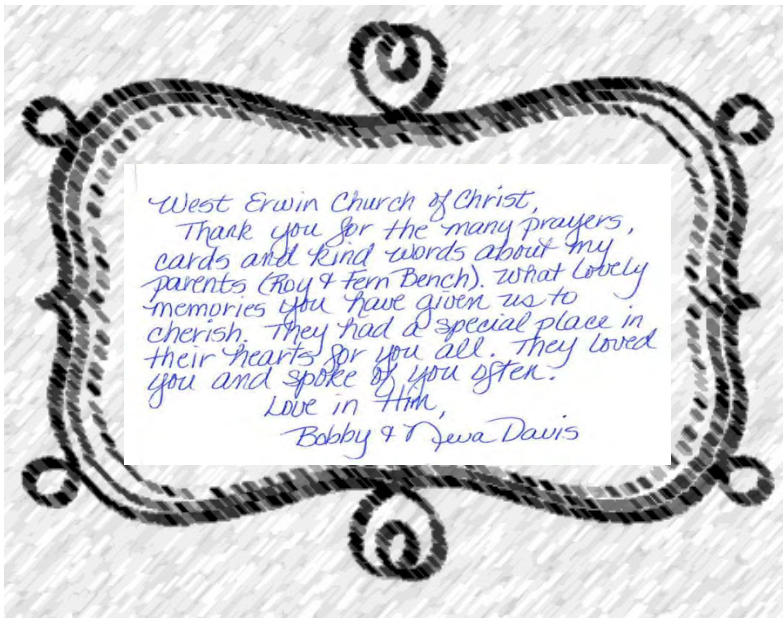 West Erwin Church of Christ,
Thank you for the many prayers,
cards and kind words about my
parents (Roy & Fern Bench). What lovely
memories you have given us to
cherish. They had a special place in
their hearts for you all. They loved
you and spoke of you often.
Love in Him,
Bobby & Davis